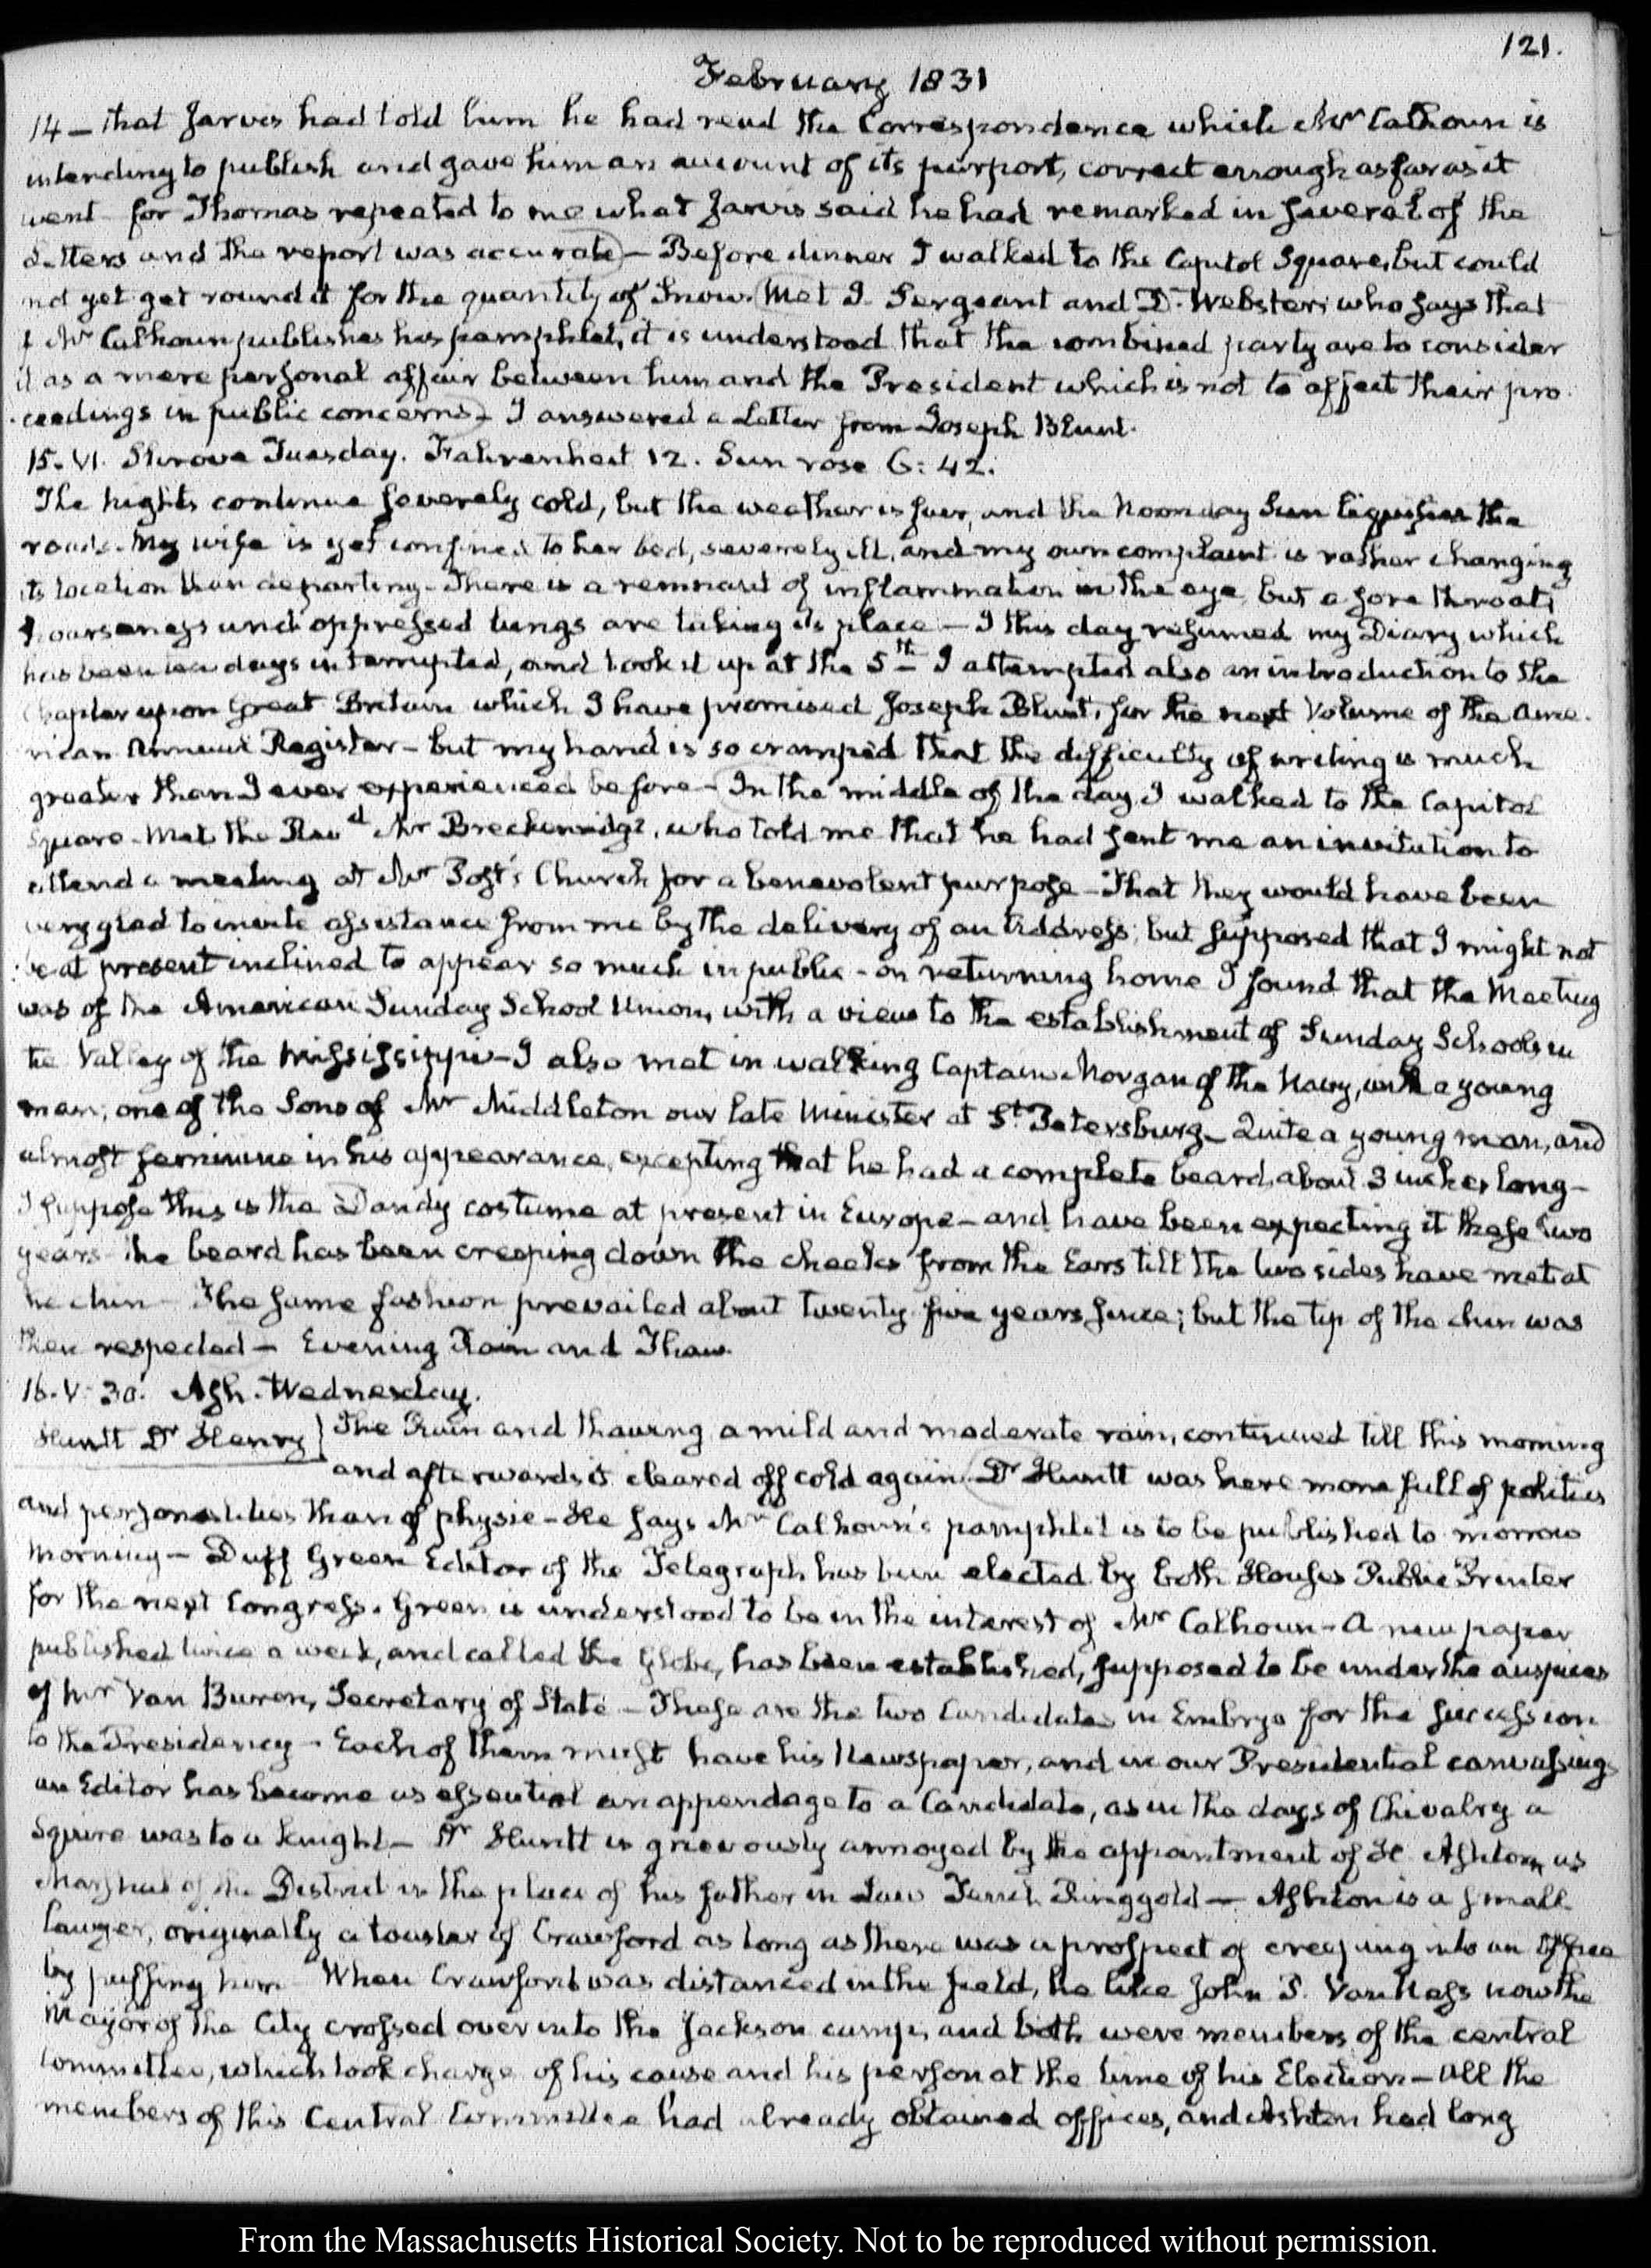 121.
February 1831
14 – that Jarvis had told him he had read the Correspondence which Mr Calhoun is
intending to publish and gave him an account of its purport, correct enough as far as it
went for Thomas repeated to me what Jarvis said he had remarked in several of the
Letters and the report was accurate – Before dinner I walked to the Capitol Square, but could
not yet get round it for the quantity of Snow. Met J. Sergeant and D. Webster; who says that
if Mr Calhoun publishes his pamphlet, it is understood that the combined party are to consider
it as a mere personal affair between him and the President which is not to affect their pro-
ceedings in public concerns – I answered a Letter from Joseph Blunt.
15. VI. Shrove Tuesday. Fahrenheit 12. Sun rose 6:42.
The nights continue severely cold, but the weather is fair, and the Noon day Sun liquifies the
roads. My wife is yet confined to her bed, severely ill, and my own complaint is rather changing
its location than departing – There is a remnant of inflammation in the eye, but a sore throat,
hoarseness and oppressed lungs are taking its place – I this day resumed my Diary which
has been ten days interrupted, and took it up at the 5th. I attempted also an introduction to the
Chapter upon Great Britain which I have promised Joseph Blunt, for the next Volume of the Ame-
rican Annual Register – but my hand is so cramped that the difficulty of writing is much
greater than I ever experienced before – In the middle of the day I walked to the Capitol
Square. Met the Revd Mr Breckenridge, who told me that he had sent me an invitation to
attend a meeting at Mr Post's Church for a benevolent purpose – That they would have been
very glad to invite assistance from me by the delivery of an Address; but supposed that I might not
be at present inclined to appear so much in public – on returning home I found that the Meeting
was of the American Sunday School Union, with a view to the establishment of Sunday Schools in
the Valley of the Mississippi – I also met in walking Captain Morgan of the Navy, with a young
man, one of the Sons of Mr Middleton our late Minister at St Petersburg – Quite a young man, and
almost feminine in his appearance, excepting that he had a complete beard, about 3 inches long –
I suppose this is the Dandy costume at present in Europe – and have been expecting it these two
years – the beard has been creeping down the cheeks from the Ears till the two sides have met at
the chin – The same fashion prevailed about twenty five years since; but the tip of the chin was
then respected – Evening Rain and Thaw.
16. V:30. Ash. Wednesday.
Huntt Dr Henry } The Rain and thawing a mild and moderate rain, continued till this morning
and afterwards it cleared off cold again. Dr Huntt was here more full of politics
and personalities than of physic – He says Mr Calhoun's pamphlet is to be published to morrow
Morning – Duff Green Editor of the Telegraph has been elected by both Houses Public Printer
for the next Congress. Green is understood to be in the interest of Mr Calhoun – A new paper
published twice a week, and called the Globe, has been established, supposed to be under the auspices
of Mr Van Buren, Secretary of State – These are the two Candidates in Embryo for the succession
to the Presidency – Each of them must have his Newspaper, and in our Presidential canvassings
an Editor has become as essential an appendage to a Candidate, as in the days of Chivalry a
Squire was to a knight – Dr Huntt is grievously annoyed by the appointment of H. Ashton, as
Marshal of the District in the place of his father in Law Tench Ringgold – Ashton is a small
lawyer, originally a toaster of Crawford as long as there was a prospect of creeping into an Office
by puffing him When Crawford was distanced in the field, he like John P. Van Ness now the
Mayor of the City crossed over into the Jackson camp, and both were members of the central
Committee, which took charge of his cause and his person at the time of his Election – All the
members of this Central Committee had already obtained offices, and Ashton had long
From the Massachusetts Historical Society. Not to be reproduced without permission.